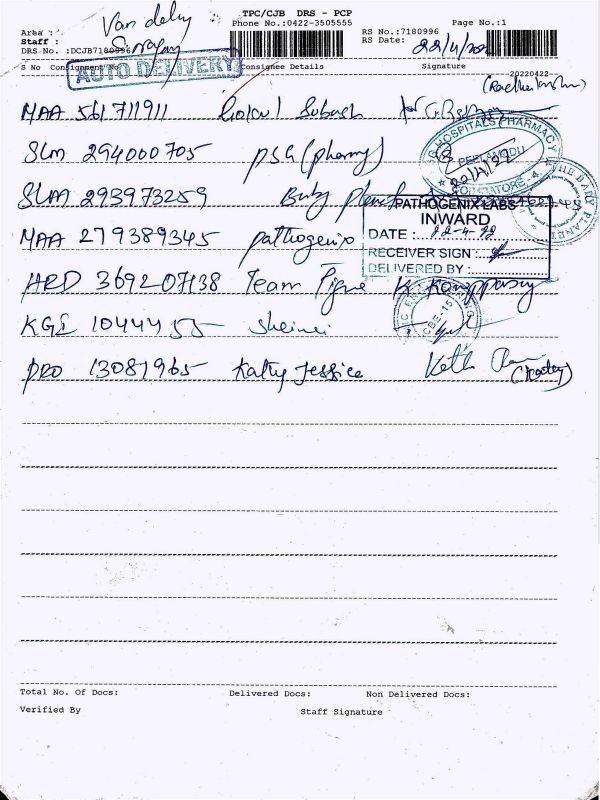 TPC/CJB DRS - PCP
Phone No.:0422-3505555
Page No.:1
Area :
Van
Staff :
DRS-No. :DCJB7180996
RS No.:7180996
RS Date: 22/4/
S No Consignment No
Consignee Details
Signature
20220422
AUTO DELIVERY
MAA 561711911 Gokul Subash for
SLM 294000705 PSG (pharmy)
HOSPITALS PHARMACY
PEELAMEDU
COIMBATORE - 4
22/4/22
SLM 293973259 Baby planet
THE BABY PLANET
MAA 279389345 pathogenix
PATHOGENIX LABS
INWARD
DATE : 22-4-22
RECEIVER SIGN :
DELIVERED BY :
HRD 369207138 Team
KGE 1044455
CBE-15
PRO 13081965 Kathy Jessica
Total No. Of Docs:
Delivered Docs:
Non Delivered Docs:
Verified By
Staff Signature